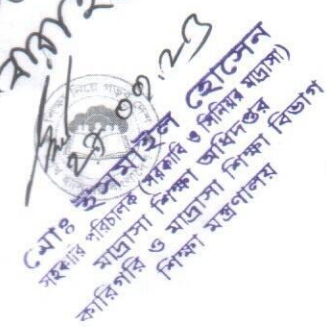 ২৫.০১.২৩
মোঃ ইসমাইল হোসেন
সহকারি পরিচালক (সরকারি ও সিনিয়র মাদ্রাসা)
মাদ্রাসা শিক্ষা অধিদপ্তর
কারিগরি ও মাদ্রাসা শিক্ষা বিভাগ
শিক্ষা মন্ত্রণালয়